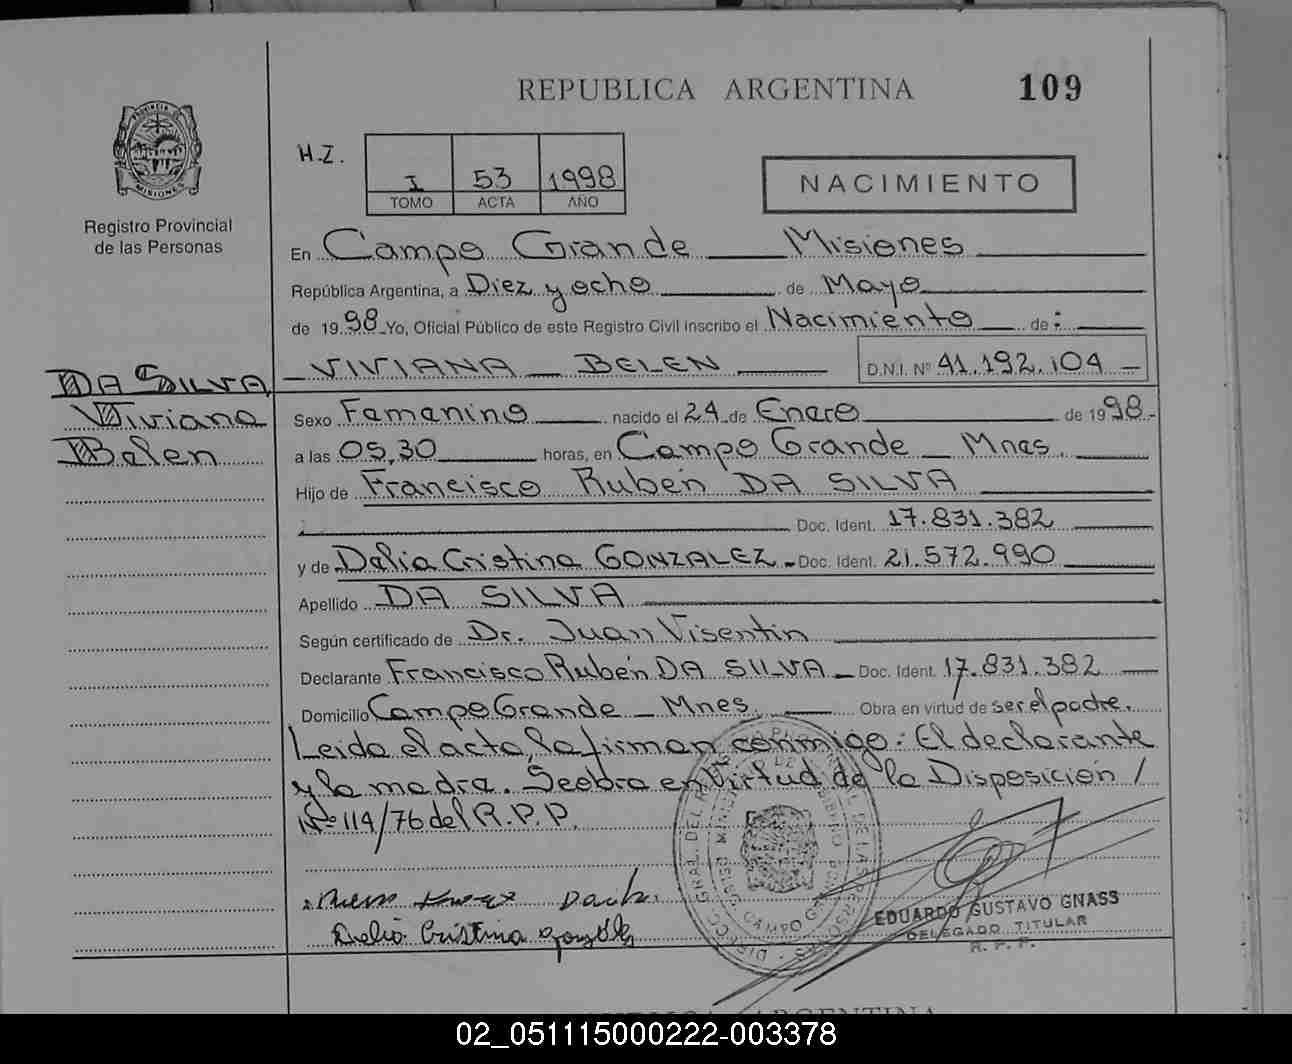 REPUBLICA ARGENTINA 109
H.Z. I 53 1998
TOMO ACTA AÑO
NACIMIENTO
Registro Provincial
de las Personas
En Campo Grande Misiones
República Argentina, a Diez y ocho de Mayo
de 1998 Yo, Oficial Público de este Registro Civil inscribo el Nacimiento de:
VIVIANA BELEN D.N.I. Nº 41.192.104
DA SILVA
Viviana
Belen
Sexo Femenino nacido el 24 de Enero de 1998
a las 05,30 horas, en Campo Grande Mnes.
Hijo de Francisco Rubén DA SILVA
Doc. Ident. 17.831.382
y de Delia Cristina GONZALEZ Doc. Ident. 21.572.990
Apellido DA SILVA
Según certificado de Dr. Juan Visentin
Declarante Francisco Rubén DA SILVA Doc. Ident. 17.831.382
Domicilio Campo Grande Mnes. Obra en virtud de ser el padre.
Leida el acta, la firman conmigo: El declarante
y la madre. Se obra en Virtud de la Disposición /
Nº 114/76 del R.P.P.
Delia Cristina
EDUARDO GUSTAVO GNASS
DELEGADO TITULAR
R. P. P.
REPUBLICA ARGENTINA
02_051115000222-003378